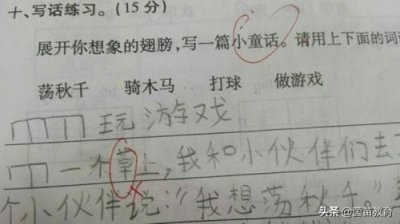 十、写话练习。(15 分)
展开你想象的翅膀,写一篇小童话。请用上下面的词
荡秋千 骑木马 打球 做游戏
玩游戏
一个草上,我和小伙伴们去
个小伙伴说:"我想荡秋千。
头条 @茵苗教育